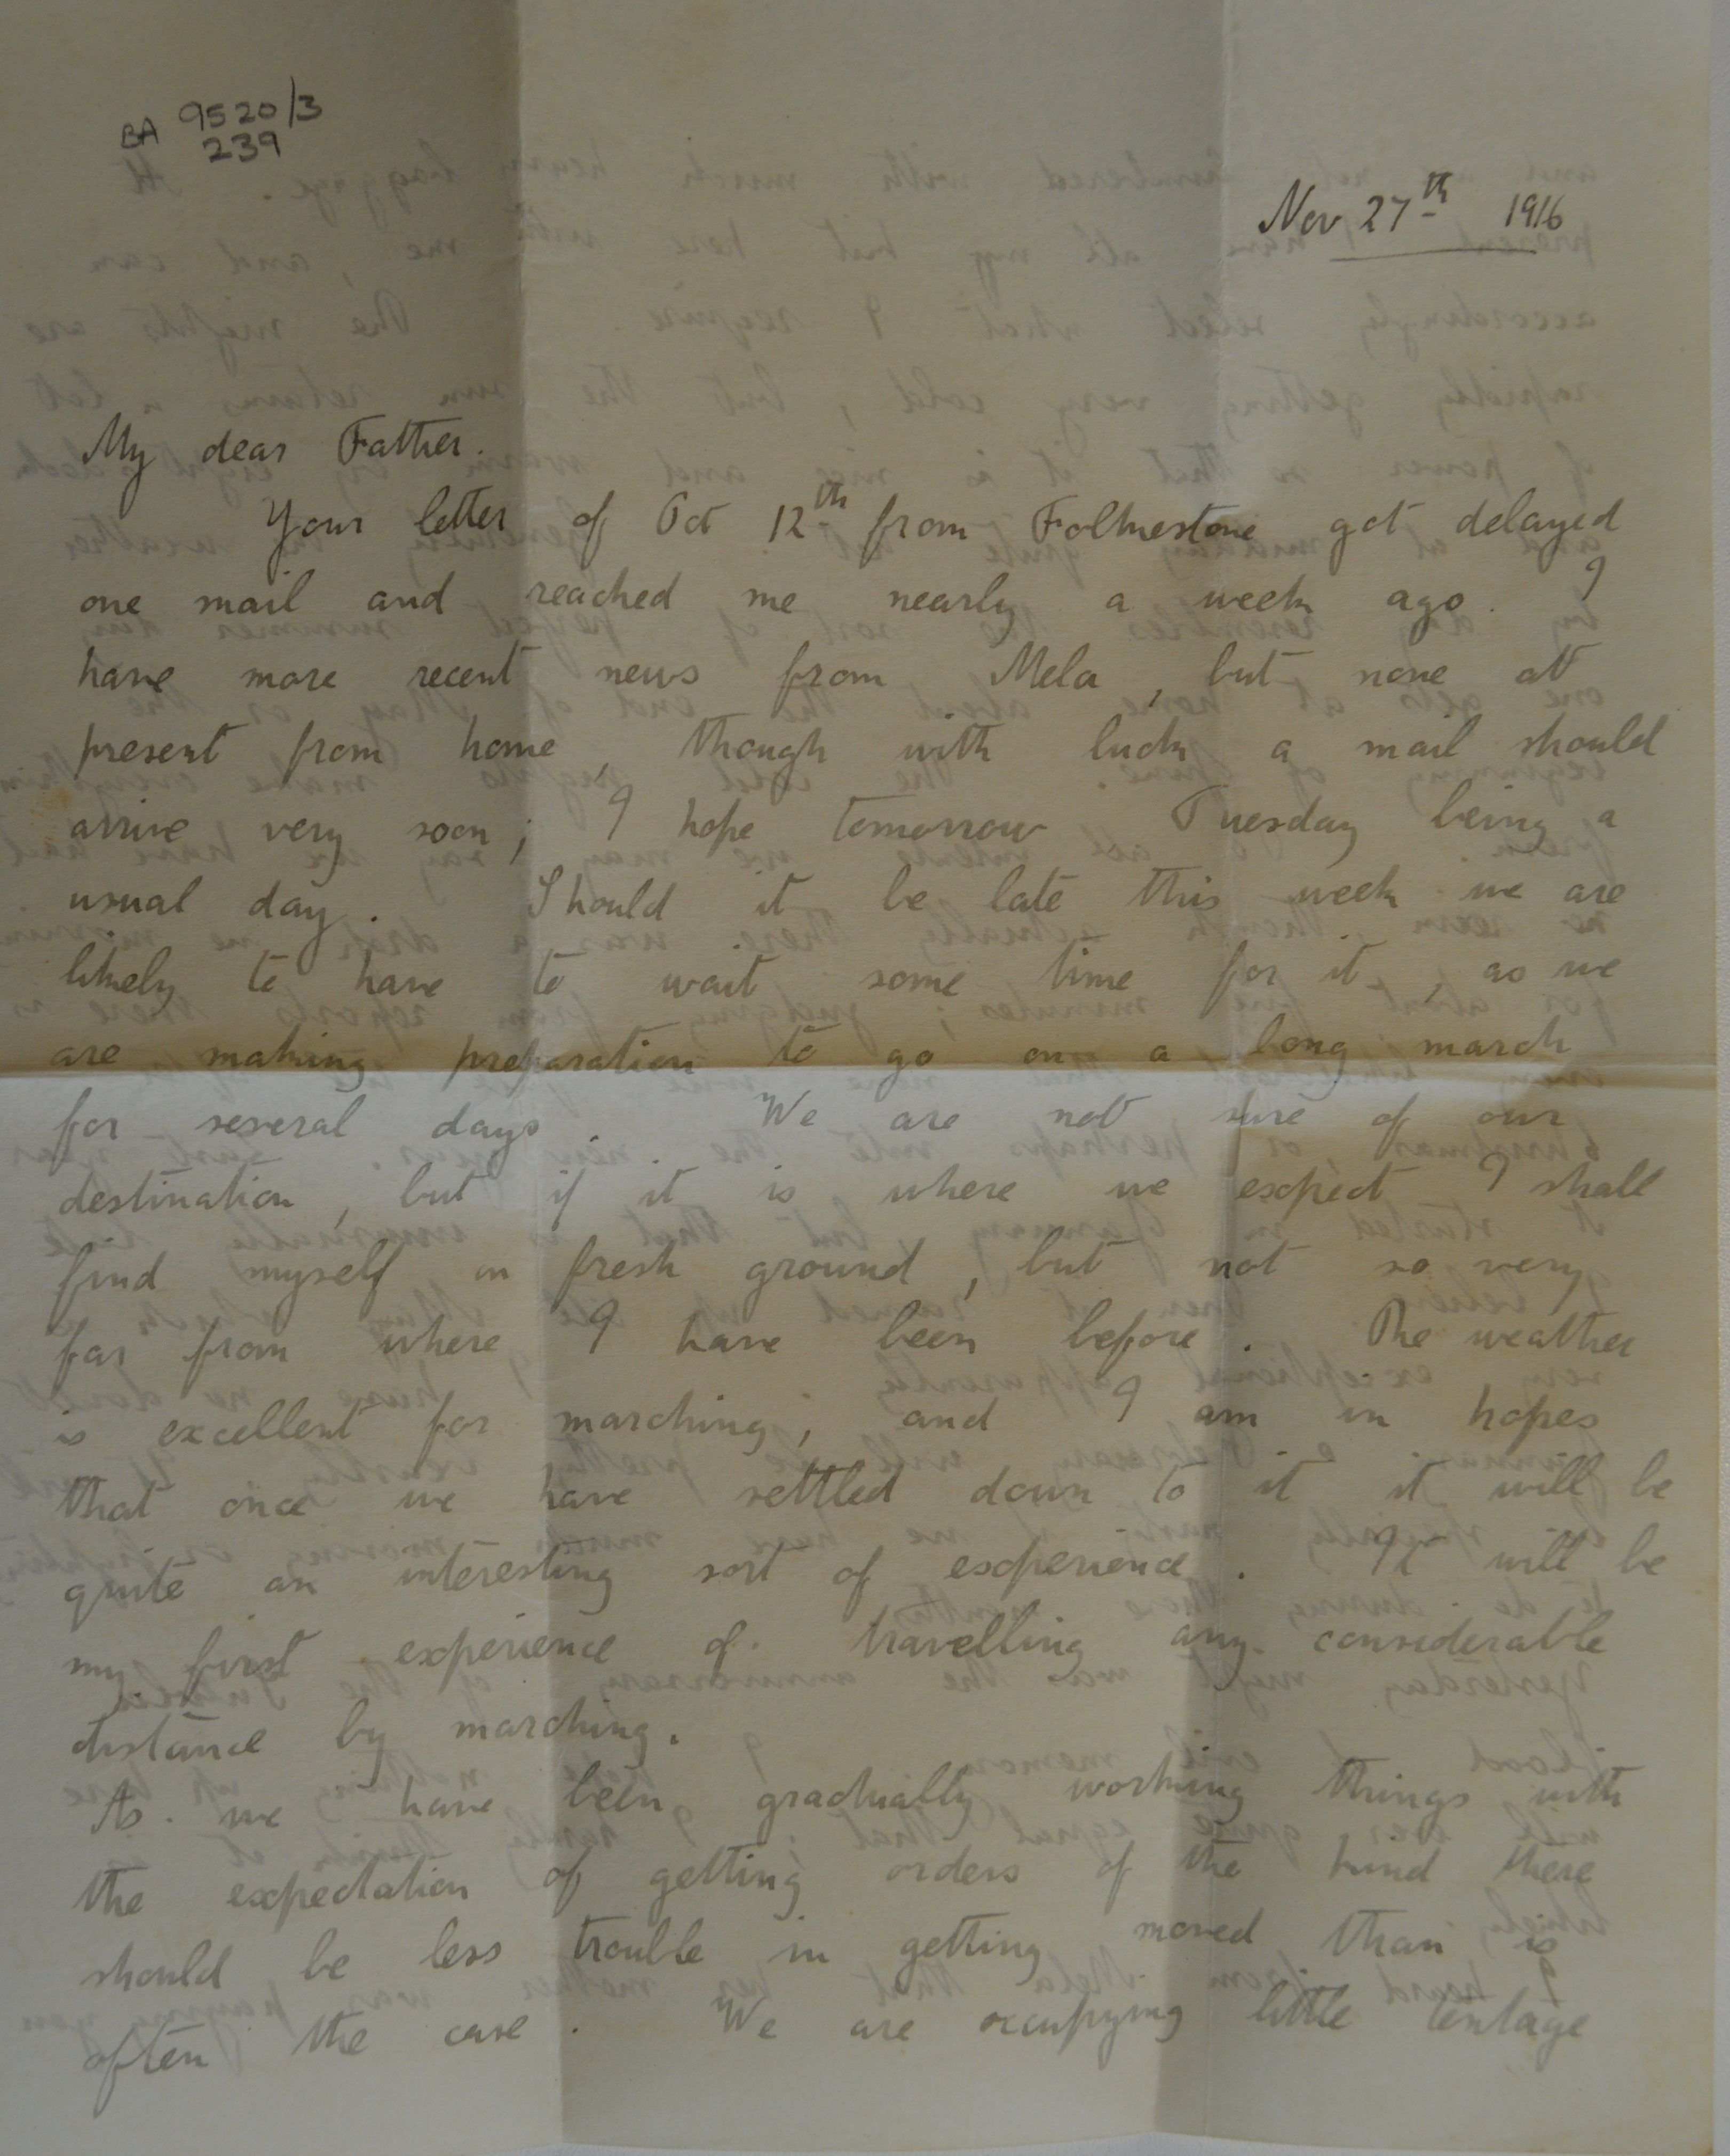 BA 9520/3
239
Nov 27th 1916
My dear Father.
Your letter of Oct 12th from Folkestone got delayed
one mail and reached me nearly a week ago. I
have more recent news from Mela, but none at
present from home, though with luck a mail should
arrive very soon; I hope tomorrow Tuesday being a
usual day. Should it be late this week we are
likely to have to wait some time for it, as we
are making preparation to go on a long march
for several days. We are not sure of our
destination, but if it is where we expect I shall
find myself on fresh ground, but not so very
far from where I have been before. The weather
is excellent for marching, and I am in hopes
that once we have settled down to it it will be
quite an interesting sort of experience. It will be
my first experience of travelling any considerable
distance by marching.
As we have been gradually working things with
the expectation of getting orders of the kind there
should be less trouble in getting moved than is
often the case. We are occupying little tentage